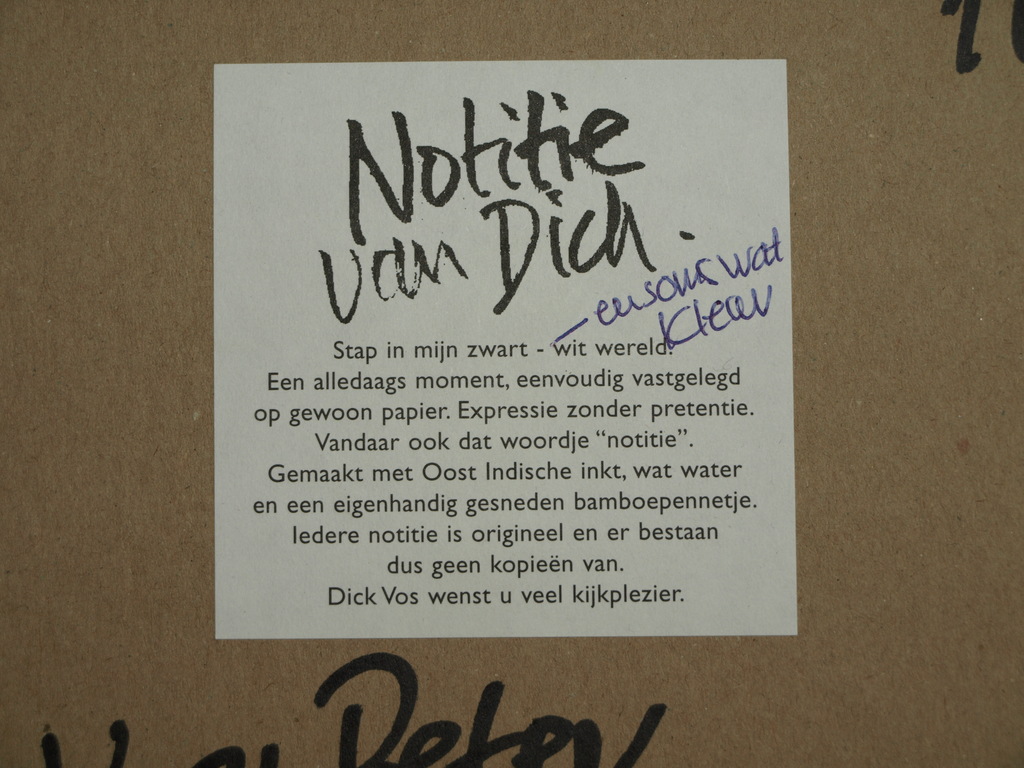 Notitie
van Dick.
– en soms wat
kleur
Stap in mijn zwart - wit wereld.
Een alledaags moment, eenvoudig vastgelegd
op gewoon papier. Expressie zonder pretentie.
Vandaar ook dat woordje “notitie”.
Gemaakt met Oost Indische inkt, wat water
en een eigenhandig gesneden bamboepennetje.
Iedere notitie is origineel en er bestaan
dus geen kopieën van.
Dick Vos wenst u veel kijkplezier.